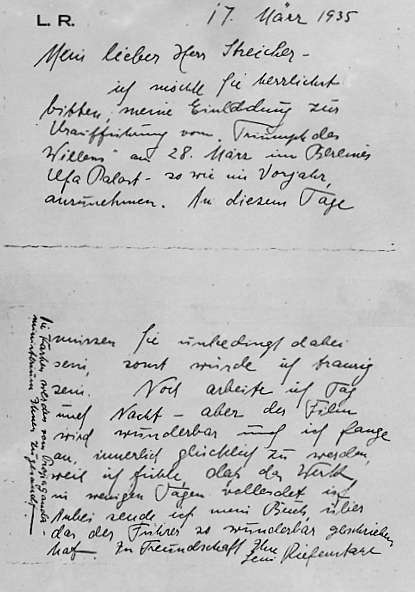 L. R.
17. März 1935
Mein lieber Herr Streicher –
ich möchte Sie herzlichst
bitten, meine Einladung zur
Uraufführung vom "Triumph des
Willens" am 28. März im Berliner
Ufa Palast – so wie im Vorjahr,
anzunehmen. An diesem Tage
müssen Sie unbedingt dabei
sein, sonst würde ich traurig
sein. Noch arbeite ich Tag
und Nacht – aber der Film
wird wunderbar und ich fange
an, innerlich glücklich zu werden,
weil ich fühle, dass das Werk
in wenigen Tagen vollendet ist
Anbei sende ich mein Buch über
das der Führer so wunderbar geschrieben
hat. In Freundschaft Ihre
Leni Riefenstahl
Die Karten werden vom Propaganda-
ministerium Ihnen zugesandt! –